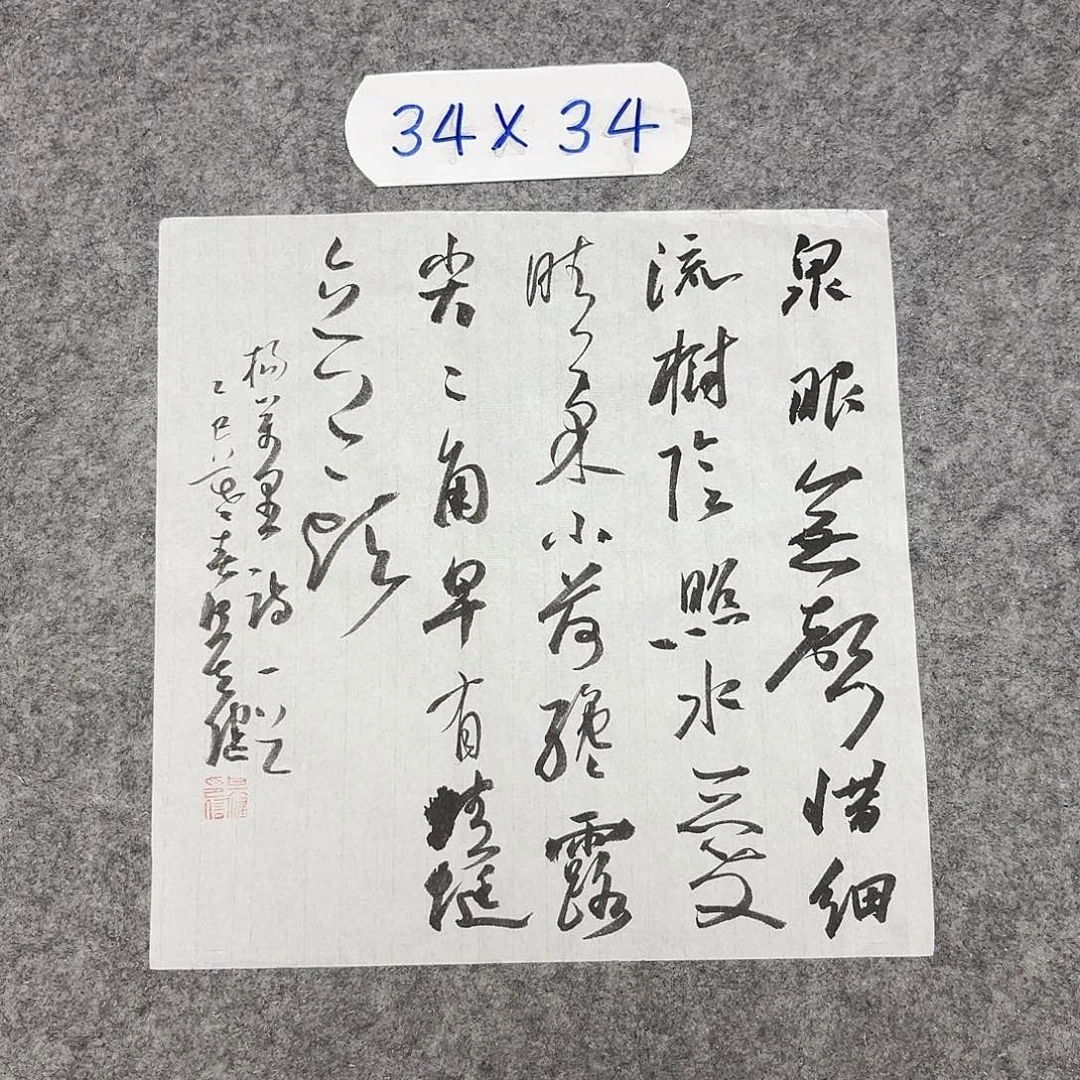 34X34
泉眼無聲惜細
流樹陰照水愛
晴柔小荷纔露
尖々角早有蜻蜓
立上頭
楊萬里詩一首
乙巳春